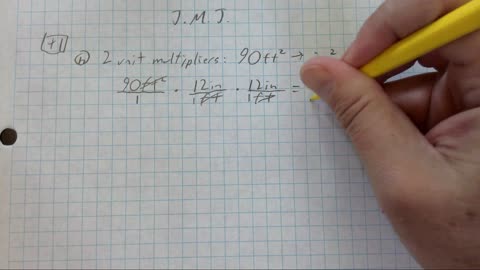 J.M.J.
41
b) 2 unit multipliers: 90 ft² → in²
90ft²/1 · 12in/1ft · 12in/1ft =